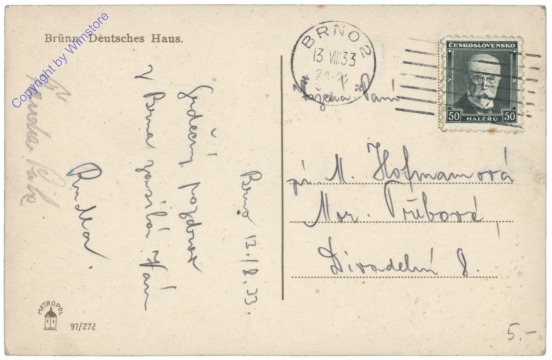 Brünn, Deutsches Haus.
BRNO 2
13 VIII 33
ČESKOSLOVENSKO
50 HALÉŘŮ 50
Vážená Paní
pí M. Hofmannová
Mor. Třebová,
Divadelní 8.
Brno 13./8. 33.
Srdečný pozdrav
z Brna zasílá Vám
METROPOL
97/272
5.-
Copyright by Wimstore